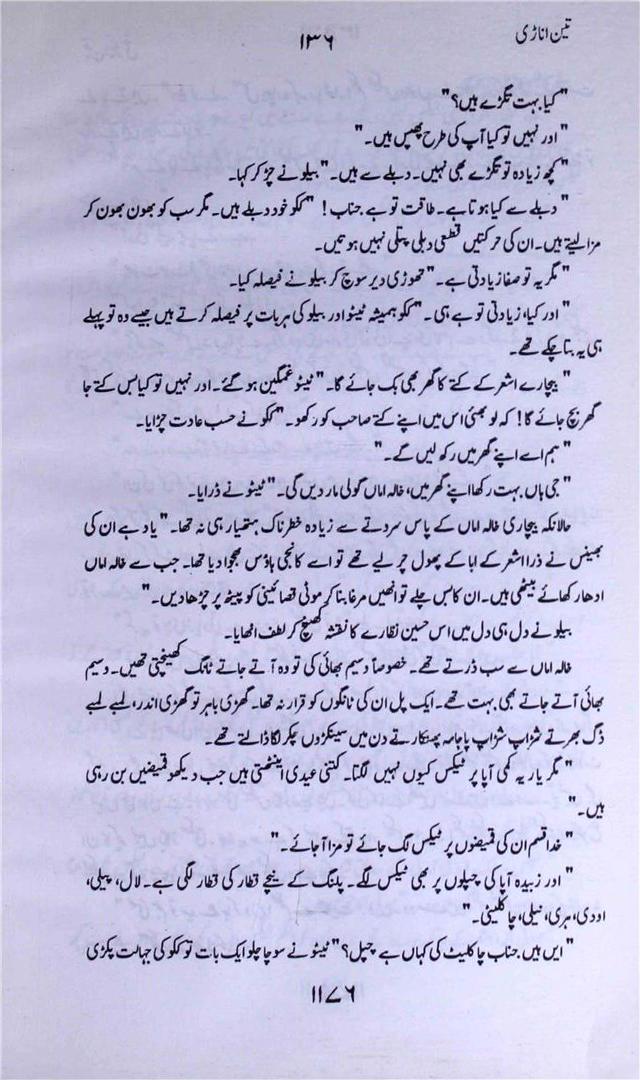 تین اناڑی
۱۳۶
"کیا بہت تگڑے ہیں؟"
"اور نہیں تو کیا آپ کی طرح پھپس ہیں۔"
"کچھ زیادہ تو تگڑے بھی نہیں۔ دبلے سے ہیں۔" بیلو نے چڑ کر کہا۔
"دبلے سے کیا ہوتا ہے۔ طاقت تو ہے جناب! "ککو خود دبلے ہیں۔ مگر سب کو بھون بھون کر
مزا لیتے ہیں۔ ان کی حرکتیں قطعی دبلی پتلی نہیں ہوتیں۔
"مگر یہ تو صفا زیادتی ہے۔" تھوڑی دیر سوچ کر بیلو نے فیصلہ کیا۔
"اور کیا، زیادتی تو ہے ہی۔" ککو ہمیشہ ٹیٹو اور بیلو کی ہر بات پر فیصلہ کرتے ہیں جیسے وہ تو پہلے
ہی یہ بتا چکے تھے۔
"بیچارے اشعر کے کتے کا گھر بھی بک جائے گا۔" ٹیٹو غمگین ہو گئے۔ اور نہیں تو کیا بس کتے جا
گھر بچ جائے گا! کہ لو بھئی اس میں اپنے کتے صاحب کو رکھو۔" ککو نے حسب عادت چڑایا۔
"ہم اسے اپنے گھر میں رکھ لیں گے۔"
"جی ہاں بہت رکھا اپنے گھر میں، خالہ اماں گولی مار دیں گی۔" ٹیٹو نے ڈرایا۔
حالانکہ بیچاری خالہ اماں کے پاس سروتے سے زیادہ خطرناک ہتھیار ہی نہ تھا۔ "یاد ہے ان کی
بھینس نے ذرا اشعر کے ابا کے پھول چر لیے تھے تو اسے کانجی ہاؤس بھجوا دیا تھا۔ جب سے خالہ اماں
ادھار کھائے بیٹھی ہیں۔ ان کا بس چلے تو انھیں مرغا بنا کر موٹی قصائینی کو پیٹھ پر چڑھا دیں۔"
بیلو نے دل ہی دل میں اس حسین نظارے کا نقشہ کھینچ کر لطف اٹھایا۔
خالہ اماں سے سب ڈرتے تھے۔ خصوصاً وسیم بھائی کی تو وہ آتے جاتے ٹانگ کھینچتی تھیں۔ وسیم
بھائی آتے جاتے بھی بہت تھے۔ ایک پل ان کی ٹانگوں کو قرار نہ تھا۔ گھڑی باہر تو گھڑی اندر، لمبے لمبے
ڈگ بھرتے شڑاپ شڑاپ پاجامہ پھٹکارتے دن میں سینکڑوں چکر لگا ڈالتے تھے۔
"مگر یار یہ نمی آپا پر ٹیکس کیوں نہیں لگتا۔ کتنی عیدی اینٹھتی ہیں جب دیکھو قمیضیں بن رہی
ہیں۔"
"خدا قسم ان کی قمیضوں پر ٹیکس لگ جائے تو مزا آجائے۔"
"اور زبیدہ آپا کی چپلوں پر بھی ٹیکس لگے۔ پلنگ کے نیچے قطار کی قطار لگی ہے۔ لال، پیلی،
اودی، ہری، نیلی، چاکلیٹی۔"
"ایں ہیں جناب چاکلیٹ کی کہاں ہے چپل؟" ٹیٹو نے سوچا چلو ایک بات تو ککو کی جہالت پکڑی
۱۱۷۶